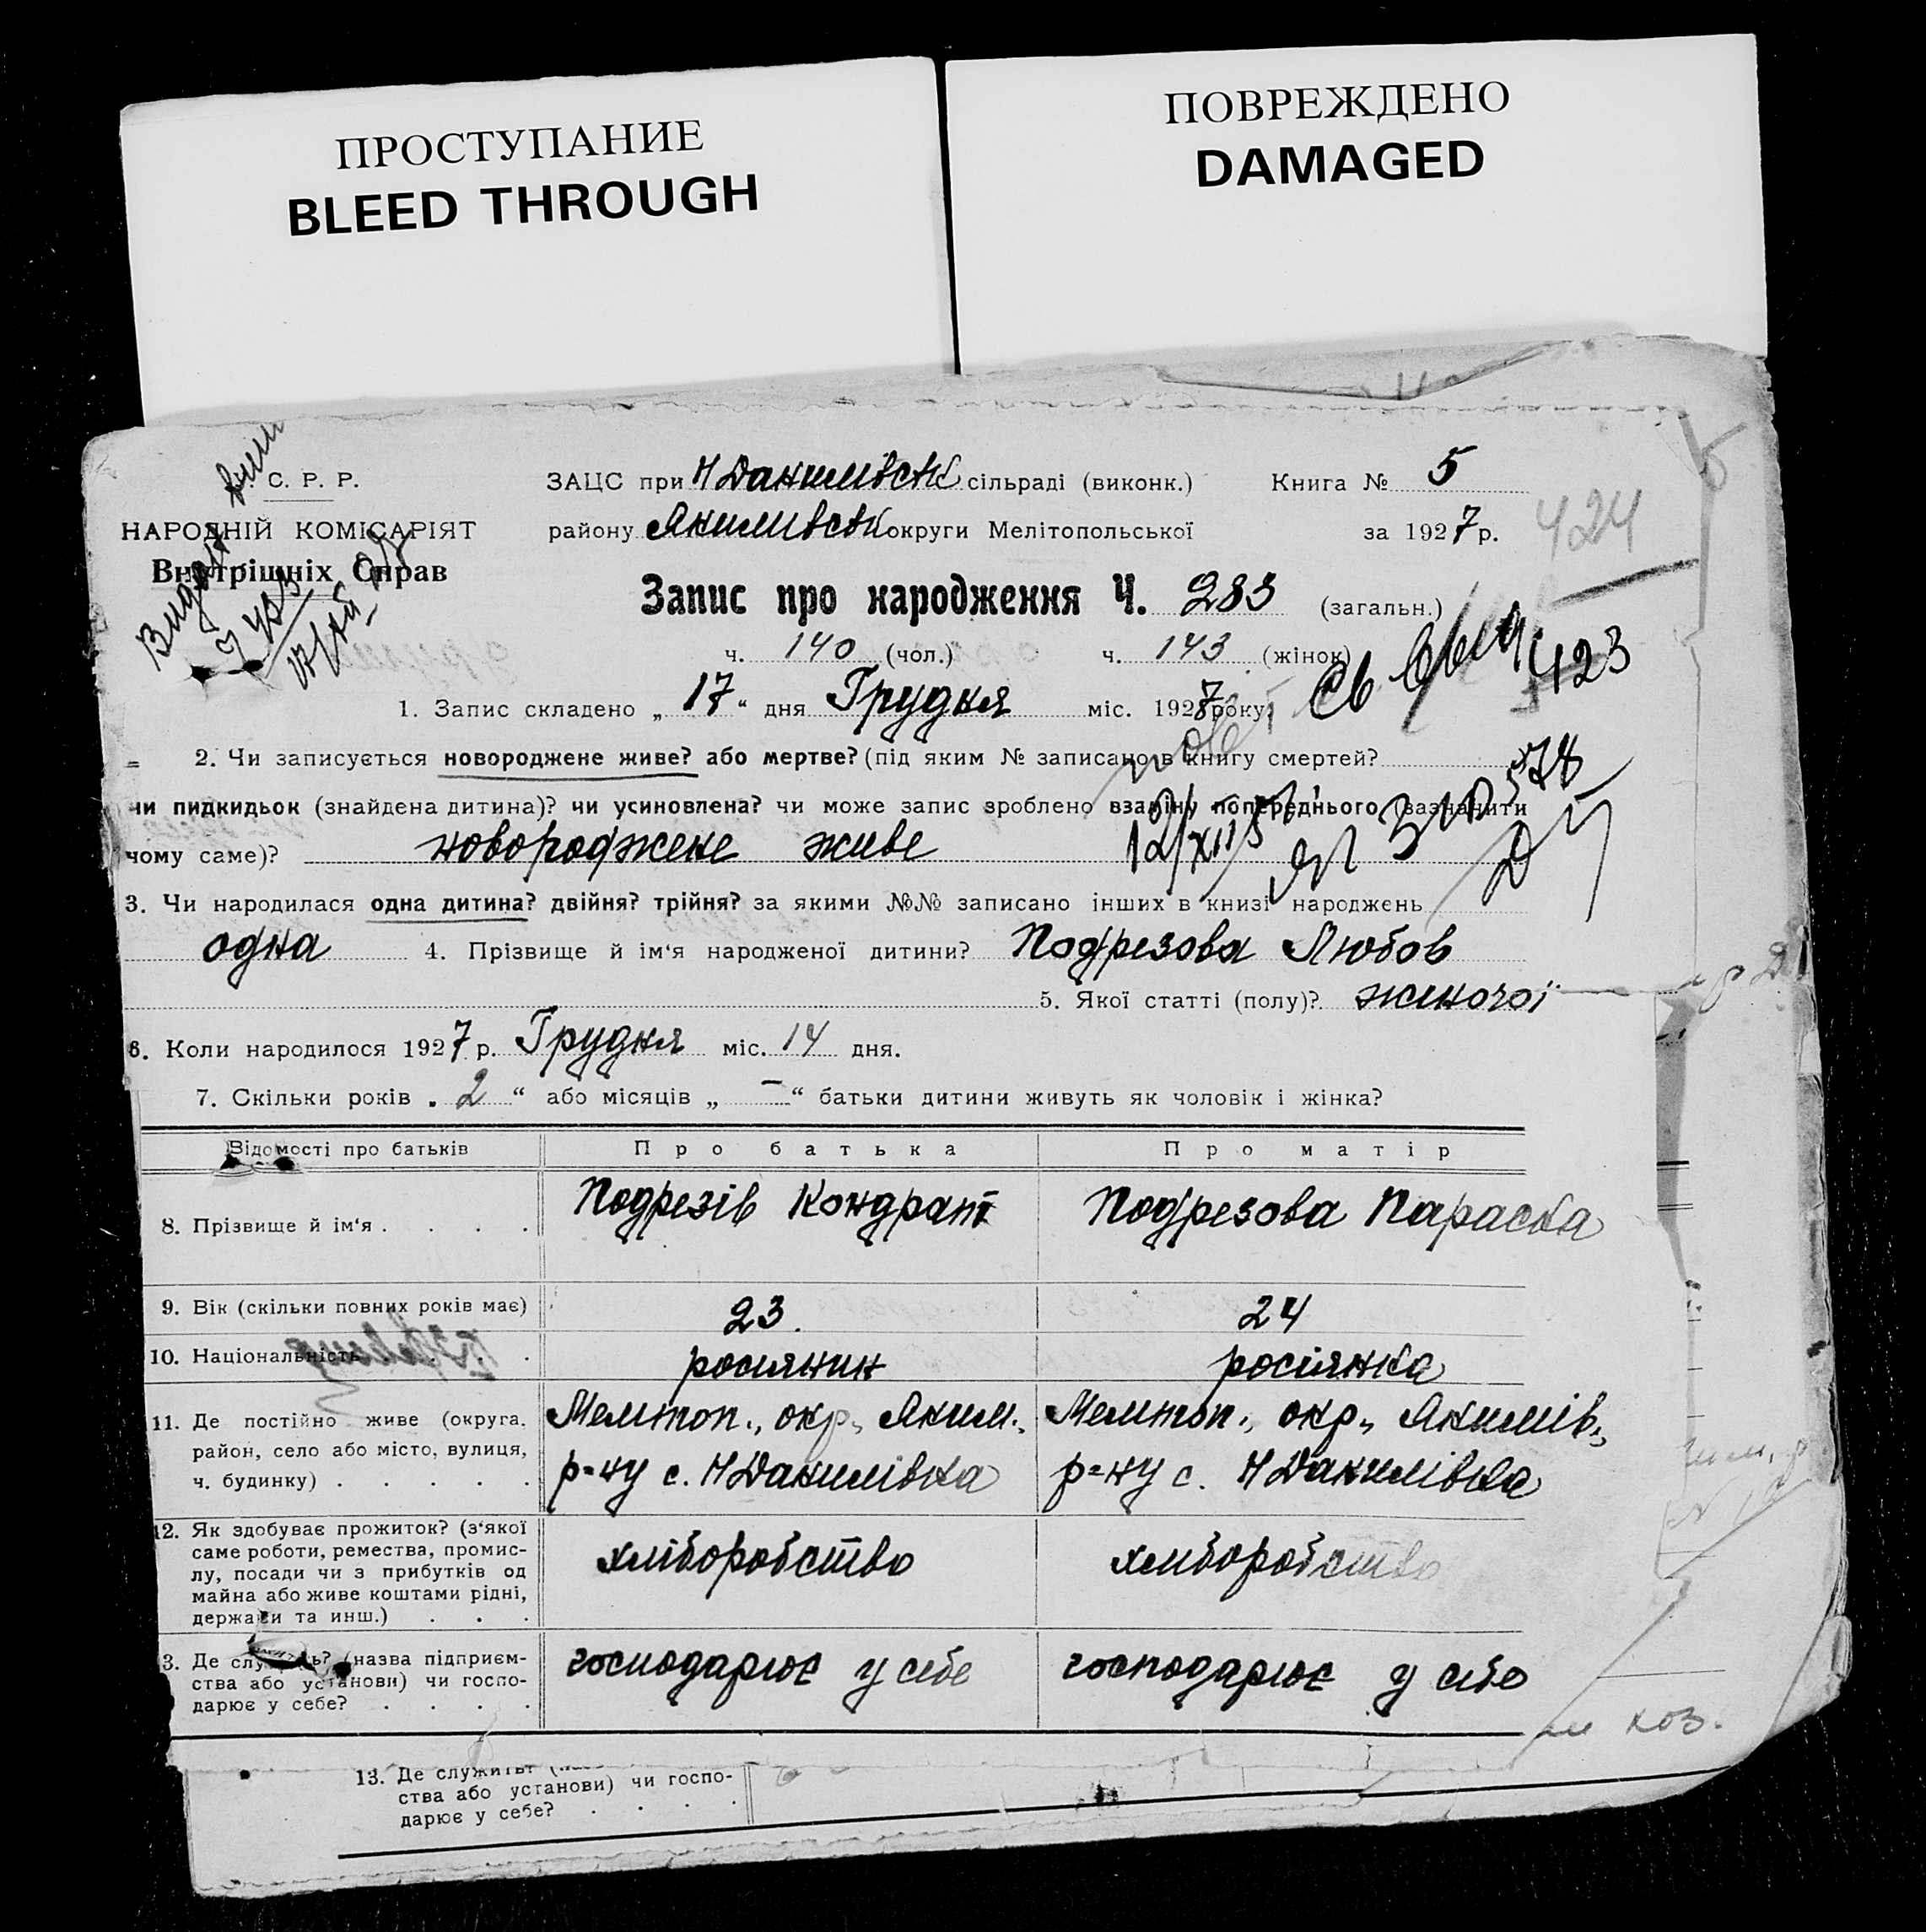 ПРОСТУПАНИЕ
BLEED THROUGH
ПОВРЕЖДЕНО
DAMAGED
С. Р. Р.
НАРОДНІЙ КОМІСАРІЯТ
Внутрішніх Справ
ЗАЦС при Н Данилівськ сільраді (виконк.) Книга № 5
району Якимівськ округи Мелітопольської за 1927 р.
424
Запис про народження Ч. 283 (загальн.)
ч. 140 (чол.) ч. 143 (жінок)
423
1. Запис складено „ 17 “ дня Грудня міс. 1927 року
2. Чи записується новороджене живе? або мертве? (під яким № записано в книгу смертей?
чи пидкидьок (знайдена дитина)? чи усиновлена? чи може запис зроблено взаміну попереднього (зазначити
чому саме)? новороджене живе
3. Чи народилася одна дитина? двійня? трійня? за якими №№ записано інших в книзі народжень
одна 4. Прізвище й ім‘я народженої дитини? Подрезова Любов
5. Якої статті (полу)? жиночої
6. Коли народилося 1927 р. Грудня міс. 14 дня.
7. Скільки років „ 2 “ або місяців „ — “ батьки дитини живуть як чоловік і жінка?
Відомості про батьків Про батька Про матір
8. Прізвище й ім‘я . . . . Подрезів Кондрат Подрезова Параска
9. Вік (скільки повних років має) 23. 24
10. Національність . . . росіянин росіянка
11. Де постійно живе (округа, Мелітоп., окр., Яким. Мелітоп., окр., Якимів.
район, село або місто, вулиця, р=ну с. Н Данилівка р=ну с. Н Данилівка
ч. будинку) . . . . .
12. Як здобуває прожиток? (з‘якої
саме роботи, ремества, промис- хліборобство хліборобство
лу, посади чи з прибутків од
майна або живе коштами рідні,
держави та инш.) . . .
3. Де служить? (назва підприєм- господарює у себе господарює у себе
ства або установи) чи госпо-
дарює у себе? . . . .
коз.
13. Де служить?
ства або установи) чи госпо-
дарює у себе? . . . .